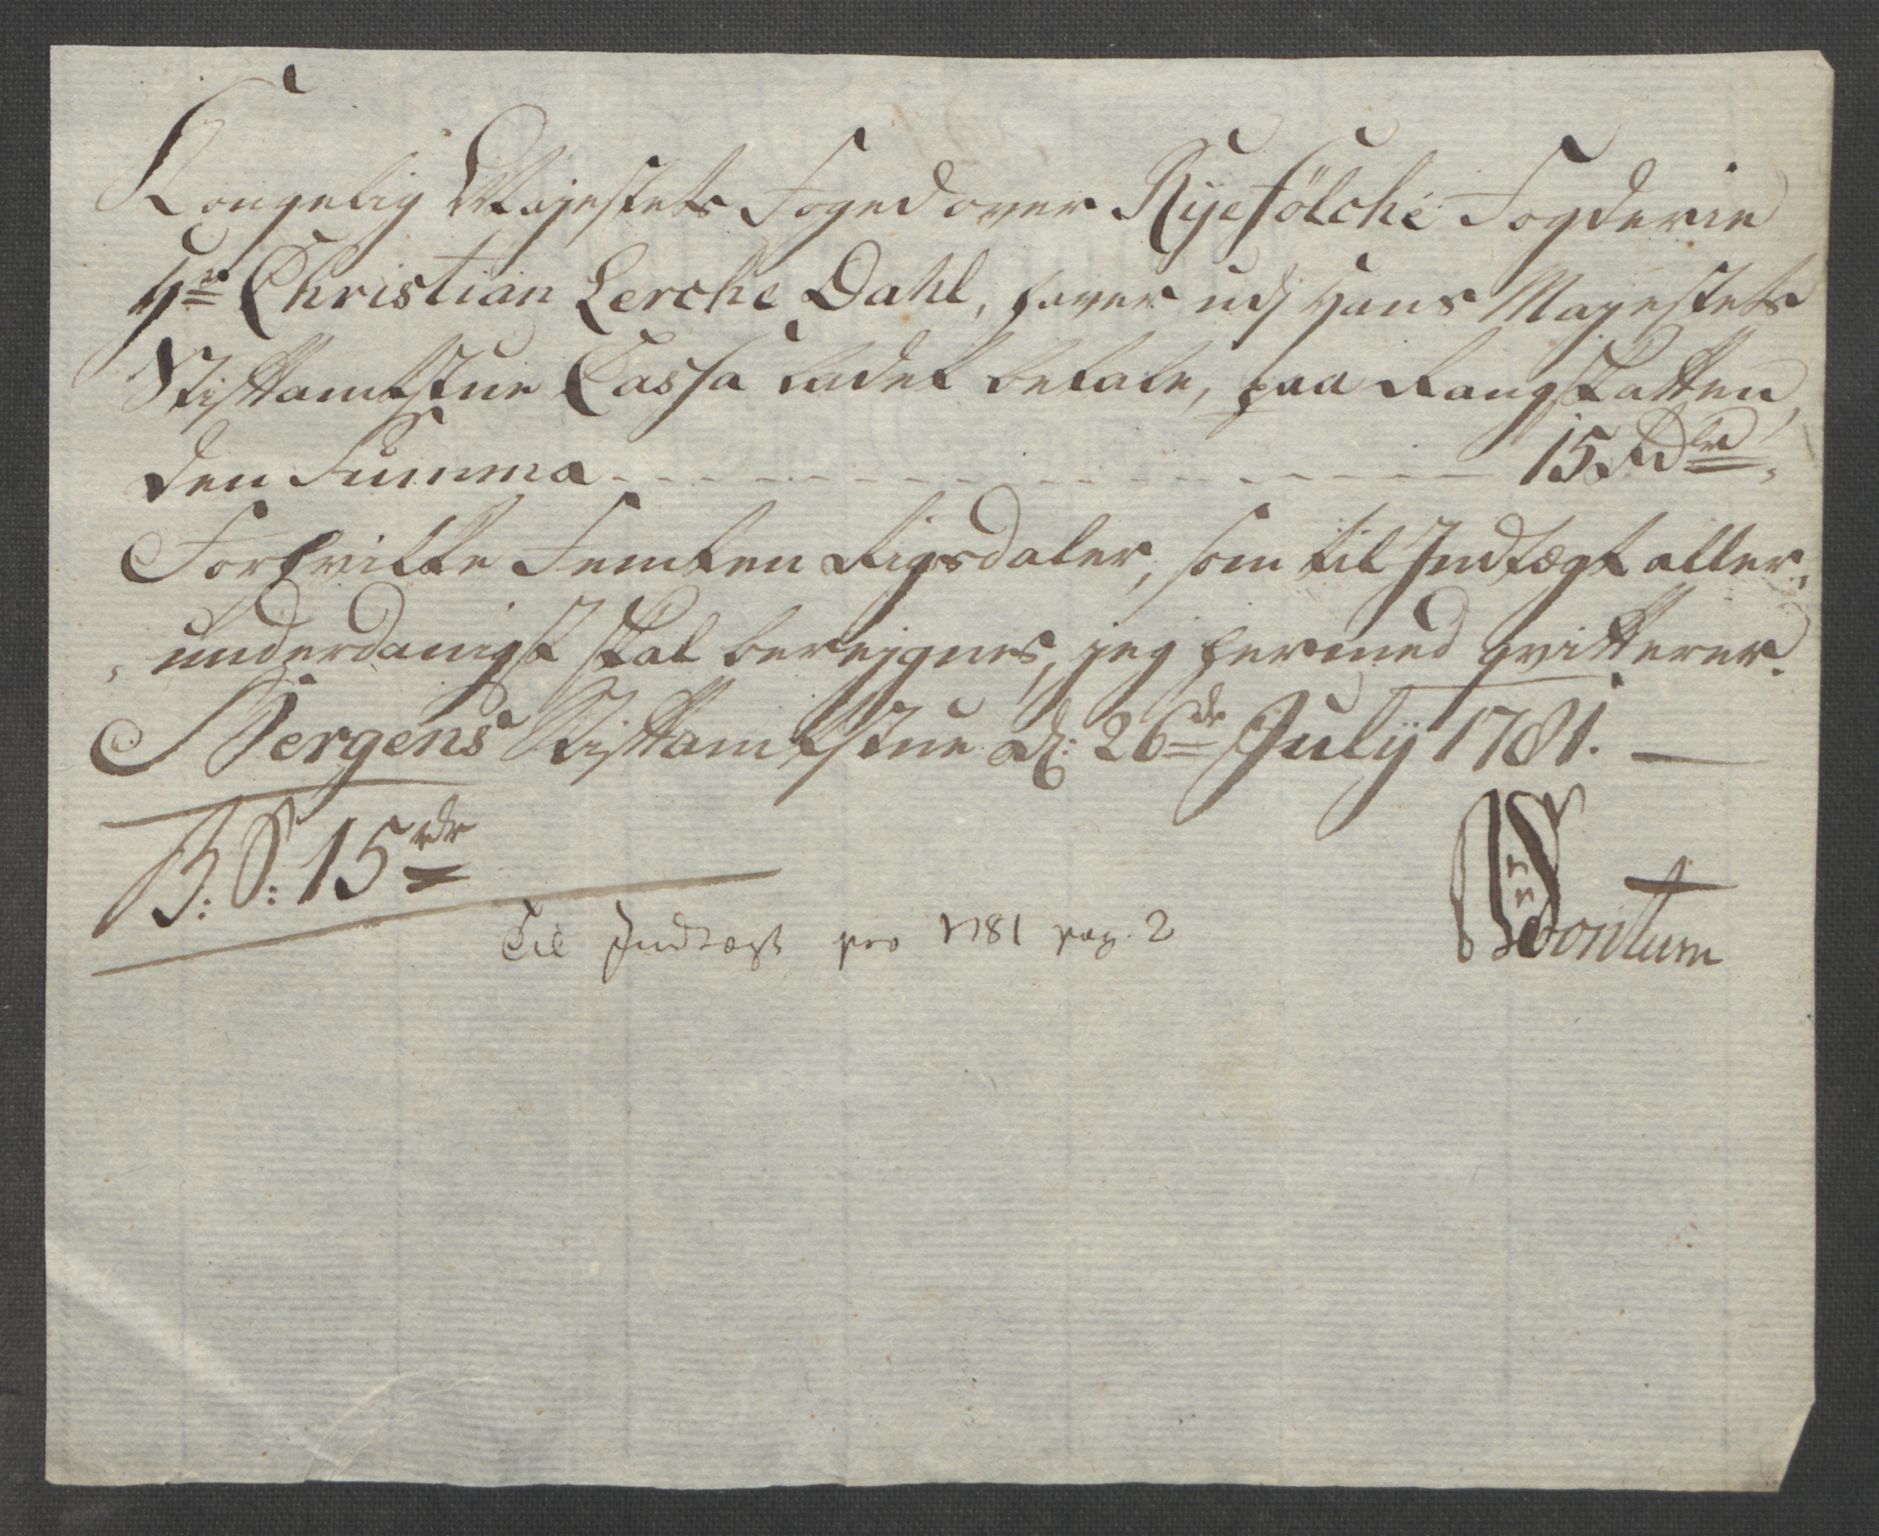 Kongelig Majestets Foged over Ryefölche Fogderie
Hr Christian Lerche Dahl, haver udj Hans Majestets
Stiftamtstue Cassa ladet betale, paa Rangskatten,
den Summa - - - - - - - - - - - - - - - - 15 Rdlr,
Forskrifte Femten Rigsdaler, som til Indtægt aller-
underdanigst skal berejgnes, jeg hermed qvitterer.
Bergens Stiftamtstue d: 26de July 1781.
B: S: 15 rdr
Til Indtægt pro 1781 pag. 2